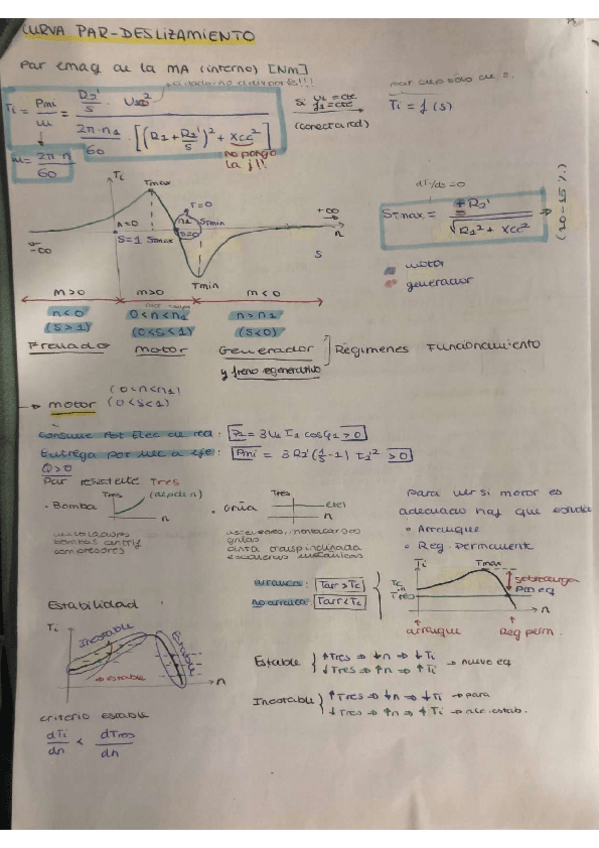 CURVA PAR-DESLIZAMIENTO
Par emag de la MA (interno) [Nm]
Ti = Pmi / ω = (R2'/s · U10²) / (2π·n1/60 · [(R1 + R2'/s)² + Xcc²])
no pongo la j!!
ω = 2π·n / 60
Si U1 = cte
f1 = cte
(conecta red)
Ti = f(s)
Ti
Tmax
T=0
n1
s=0
STmin
S=1 Smax
Tmin
+∞
-∞
n
s
dT/ds = 0
STmax = ± R2' / √(R1² + Xcc²)
motor
generador
m>0
m>0
m<0
n<0
(s>1)
0<n<n1
(0<s<1)
n>n1
(s<0)
Frenado
Motor
Generador
y freno regenerativo
Régimenes Funcionamiento
→ motor
(0<n<n1)
(0<s<1)
Consume Pot Elec de red: P1 = 3U1 I1 cosφ1 > 0
Entrega pot mec a eje: Pmi = 3R2'(1/s - 1) I2'² > 0
Q>0
Par resistente Tres
• Bomba
Tres
(depde n)
n
• Grúa
Tres
n
bombas centrif
compresores
ascensores, montacargas
grúas
cinta transportadora
para ver si motor es
adecuado hay que estudia
• Arranque
• Reg. permanente
arranca: Tarr > Tc
no arranca: Tarr < Tc
Ti
Tmax
Tc
Tres
sobrecarga
n
arranque
Reg perm.
Estabilidad
Ti
Inestable
Estable
→ estable
n
Estable { ↑Tres ⇒ ↓n ⇒ ↓Ti
↓Tres ⇒ ↑n ⇒ ↑Ti → nuevo eq
Inestable { ↑Tres ⇒ ↓n ⇒ ↓Ti → para
↓Tres ⇒ ↑n ⇒ ↑Ti
criterio estable
dTi/dn < dTres/dn